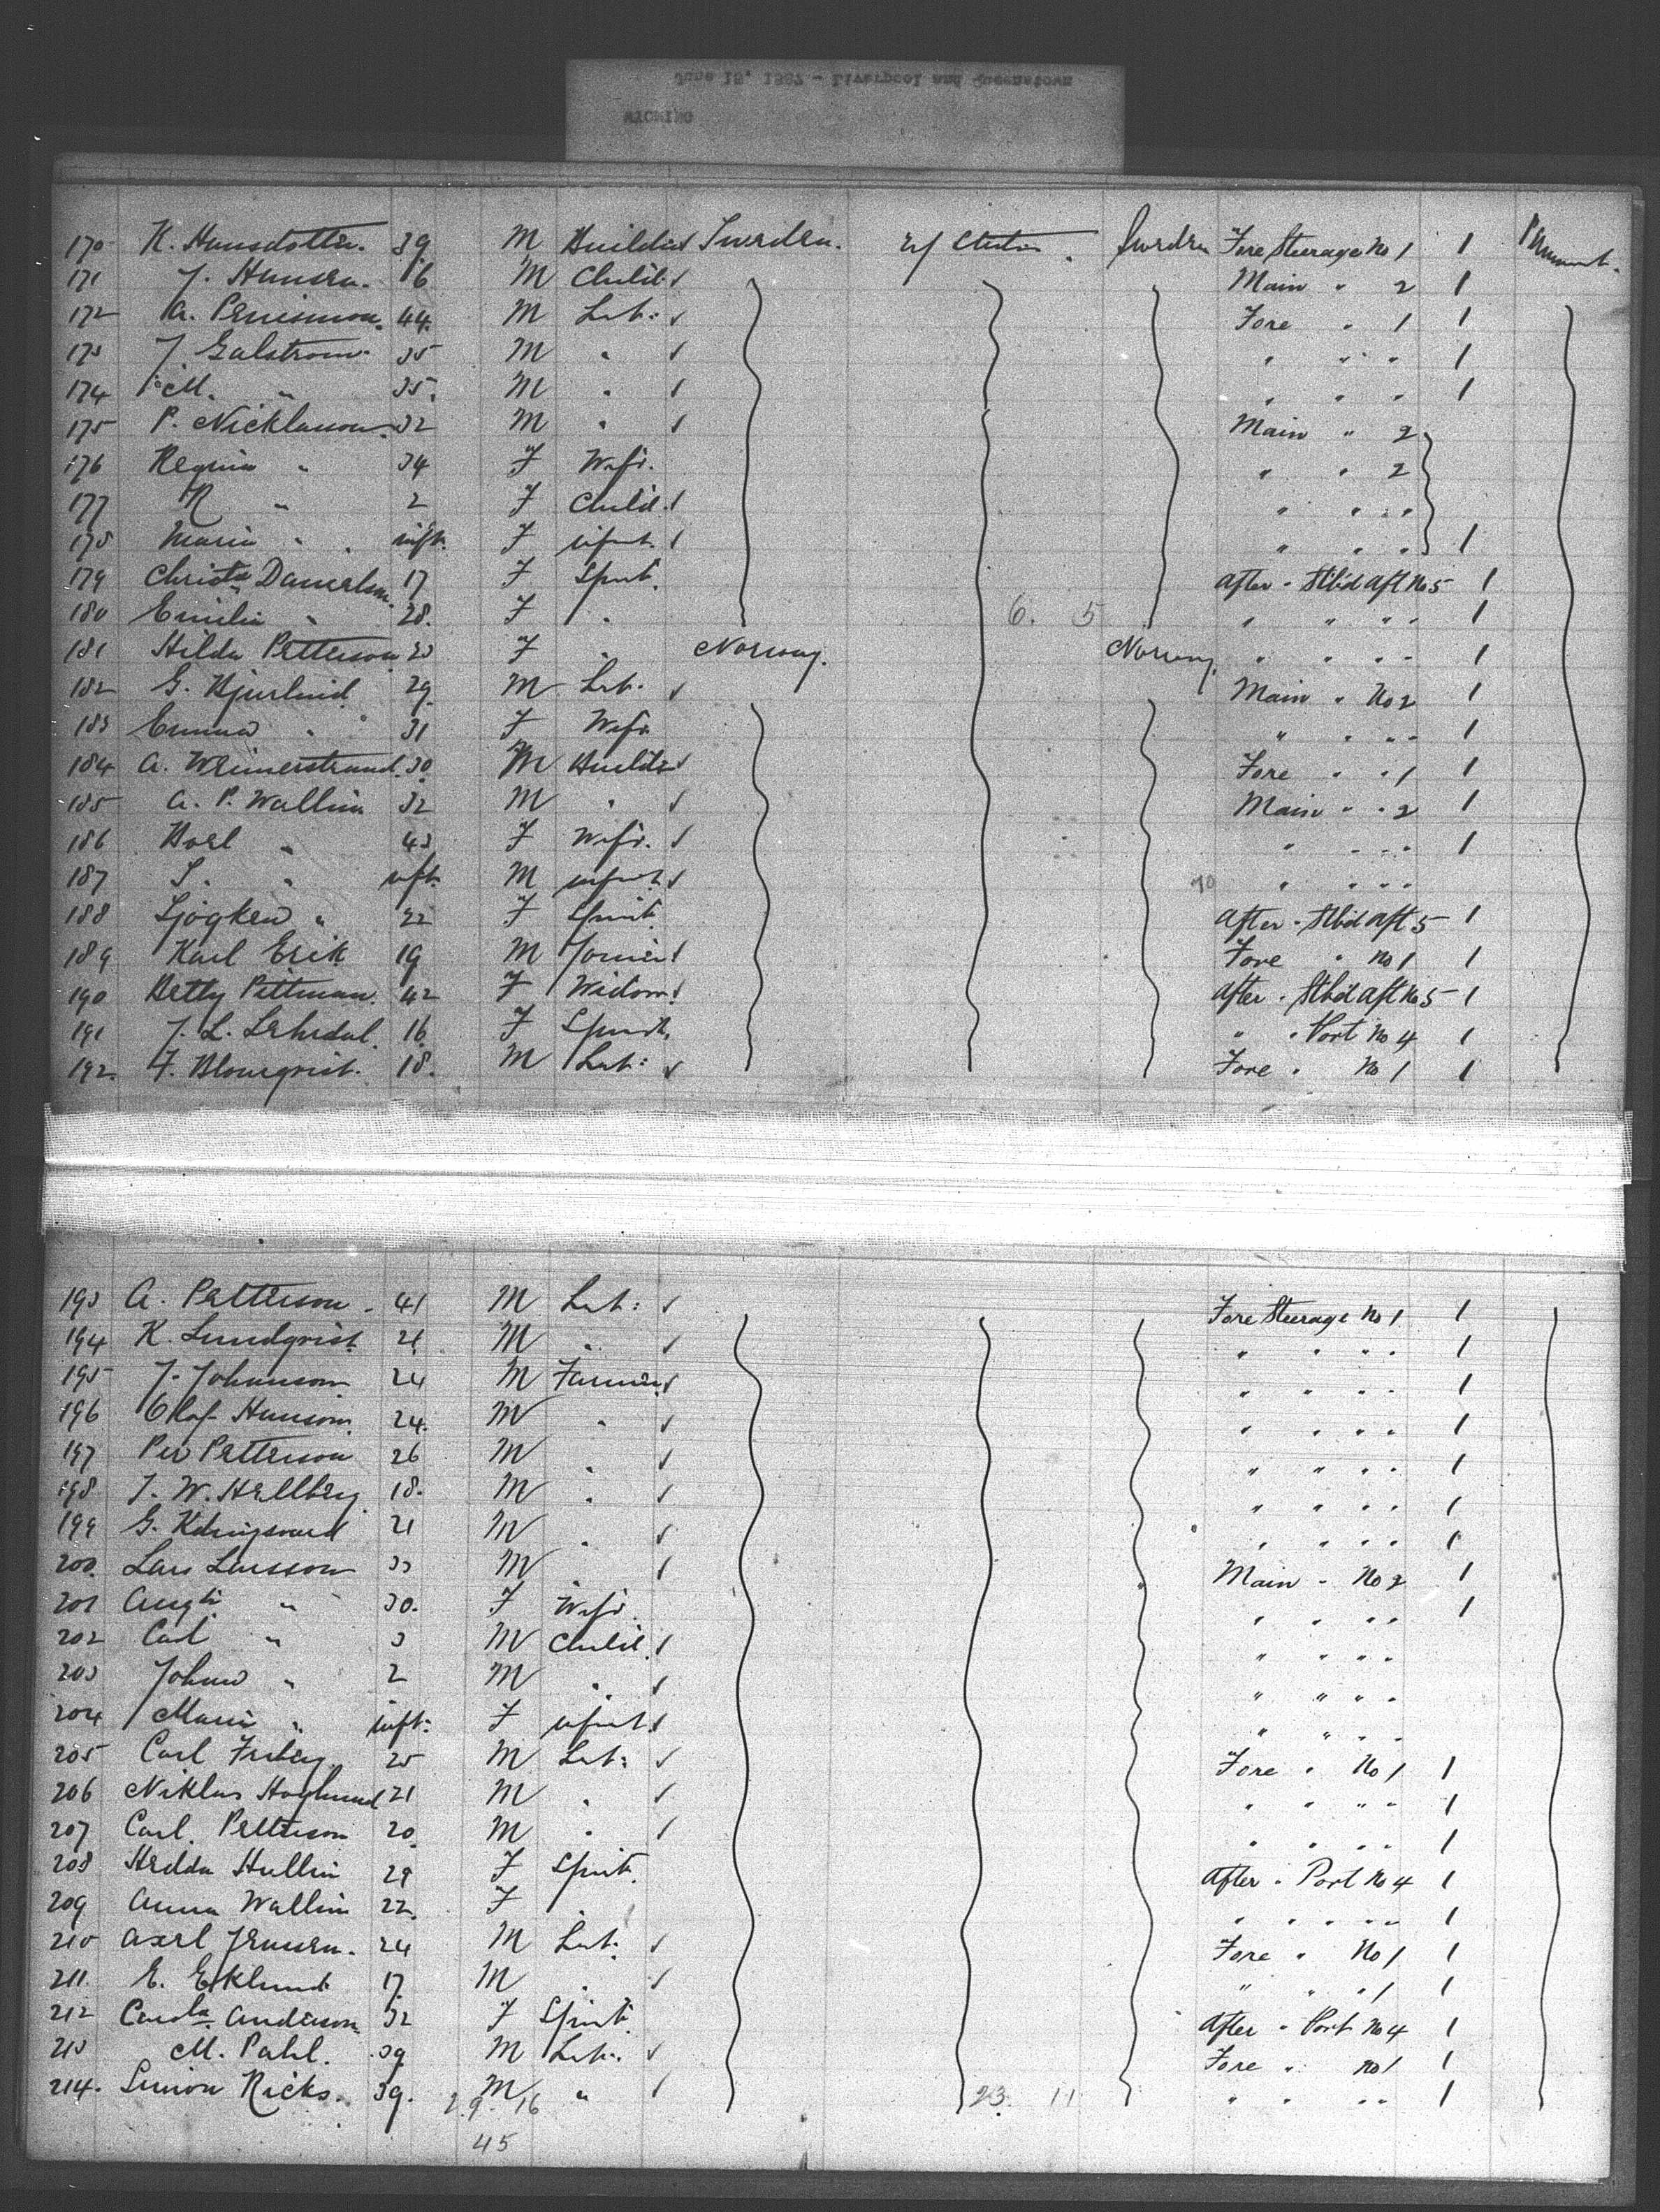 June 15, 1887 - Liverpool and Queenstown
WYOMING
170 K. Hansdotter. 39 M Builder Sweden. U/ States Sweden Fore Steerage No 1 1 Permanent.
171 J. Hansen. 16 M Child. Main " 2 1
172 A. 44. M Lab: Fore " 1 1
173 J Galstrom 35 M " " " " 1
174 M. " 35. M " " " " 1
175 P. Nicklason. 32 M " Main " 2
176 Regina " 34 F Wife. " " 2
177 R " 2 F Child. " " " "
178 Maria " inft. F infnt. " " " " 1
179 Christa Danielson. 17 F Spnt. After " Stbd Aft No 5 1
180 Emilia " 28. F " 6. 5 " " " " 1
181 Hilda Petterson 23 F " Norway. Norway. " " " " 1
182 G. Bjurlind 29. M Lab. Main " No 2 1
183 Emma " 31 F Wife " " " " 1
184 A. Wennerstrand. 30. M Builder Fore " " 1 1
185 A. P. Wallin 32 M " Main " " 2 1
186 Boel " 43 F Wife. " " " " 1
187 S. " inft. M infnt. 70 " " " "
188 " 22 F Spint. After " Stbd Aft 5 1
189 Karl Erik 19 M Joiner Fore " No 1 1
190 Betty Pittman. 42 F Widow. After " Stbd Aft No 5 1
191 J. L. Lehrdal. 16. F Spinst. " " Port No 4 1
192. F. Blomqvist. 18. M Lab: Fore " No 1 1
193 A. Petterson. 41 M Lab: Fore Steerage No 1 1
194 K. Lundqvist 21. M " " " " " 1
195 J. Johanson 24 M Farmer " " " " 1
196 Olaf Hanson. 24. M " " " " " 1
197 Per Petterson 26 M " " " " " 1
198 J. W. Hellberg. 18. M " " " " " 1
199 G. 21 M " " " " " 1
200. Lars Larsson 33 M " Main " No 2 1
201 Augta " 30. F Wife. " " " " 1
202 Carl " 3 M Child. " " " "
203 Johan " 2 M " " " " "
204 Maria " inft. F infnt. " " " "
205 Carl Friberg. 25 M Lab: Fore " No 1 1
206 Niklas Hoglund 21 M " " " " " 1
207 Carl. Petterson 20. M " " " " " 1
208 Hedda Hallin 29 F Spint. After " Port No 4 1
209 Anna Wallin 22. F " " " " " " 1
210 Axel Jensen. 24 M Lab: Fore " No 1 1
211. E. Eklund 17. M " " " " 1 1
212 Carola Anderson. 32 F Spint. After " Port No 4 1
213 M. Pahl. 39 M Lab: Fore " No 1 1
214. Simon Ricks. 39. M " " " " " 1
2. 9. 16 23. 11
45